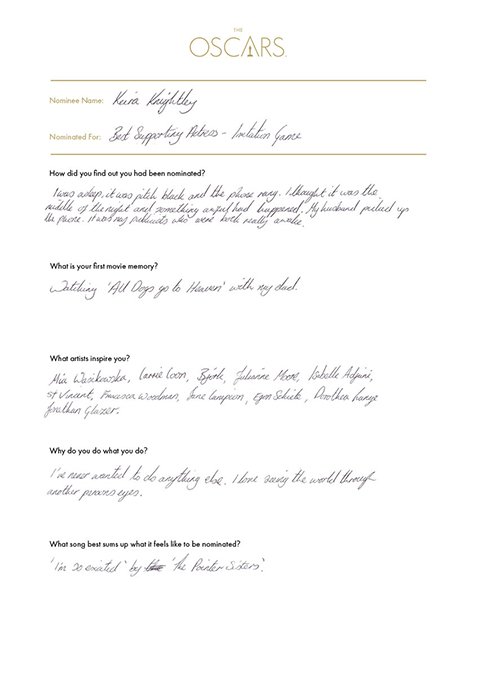 THE
OSCARS
Nominee Name: Keira Knightley
Nominated For: Best Supporting Actress - Imitation Game
How did you find out you had been nominated?
I was asleep, it was pitch black and the phone rang. I thought it was the
middle of the night and something awful had happened. My husband picked up
the phone. It was my publicists who were both really awake.
What is your first movie memory?
Watching 'All Dogs go to Heaven' with my dad.
What artists inspire you?
Mia Wasikowska, Carrie Coon, Björk, Julianne Moore, Isabelle Adjani,
St Vincent, Francesca Woodman, Jane Campion, Egon Schiele, Dorothea Lange
Jonathan Glazer.
Why do you do what you do?
I've never wanted to do anything else. I love seeing the world through
another persons eyes.
What song best sums up what it feels like to be nominated?
'I'm so excited' by 'The Pointer Sisters'.